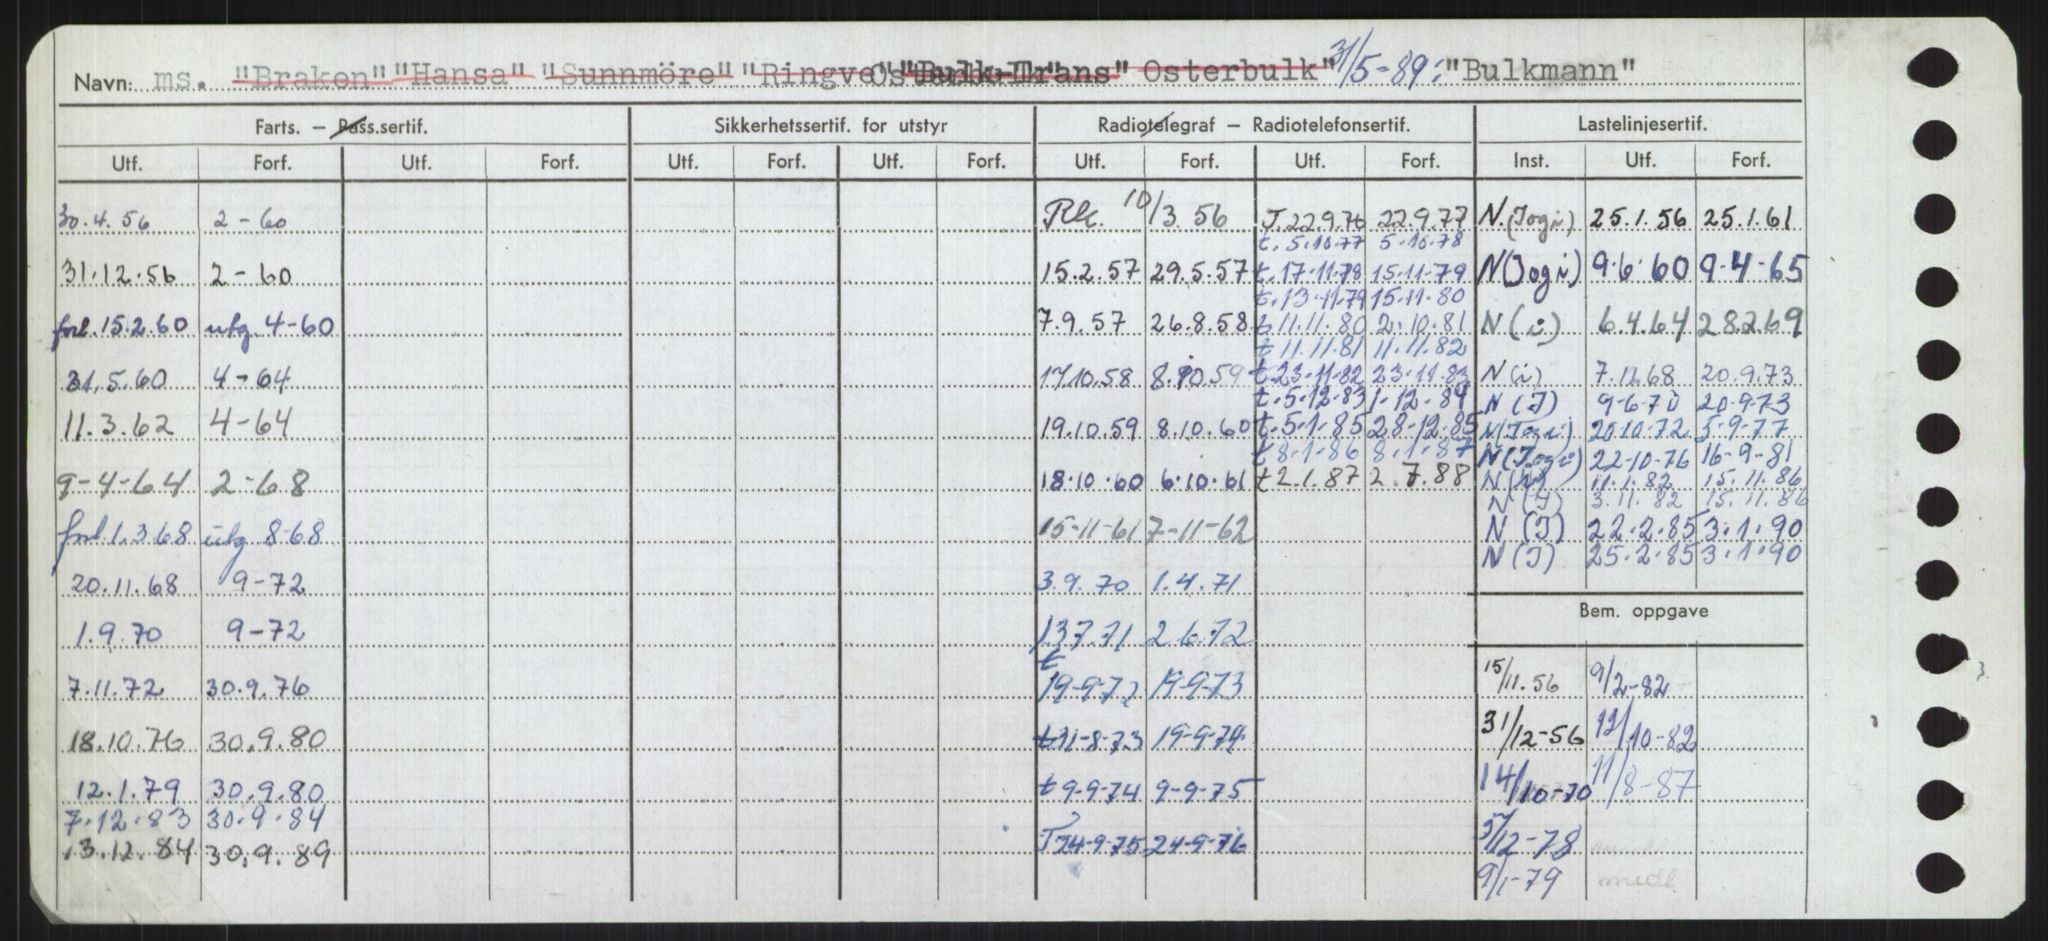 Navn: ms. "Braken" "Hansa" "Sunnmöre" "Ringve" "Bulk-Trans" Osterbulk" 31/5-89: "Bulkmann"
Farts. – Pass.sertif. Sikkerhetssertif. for utstyr Radiotelegraf – Radiotelefonsertif. Lastelinjesertif.
Utf. Forf. Utf. Forf. Utf. Forf. Utf. Forf. Utf. Forf. Utf. Forf. Inst. Utf. Forf.
30.4.56 2-60 Rk. 10/3.56 T.22.9.76 22.9.77 N (Jogi) 25.1.56 25.1.61
t. 5.10.77 5.10.78
31.12.56 2-60 15.2.57 29.5.57 t. 17.11.78 15.11.79 N (Jogi) 9.6.60 9.4.65
t. 13.11.79 15.11.80
forl. 15.2.60 utg. 4-60 7.9.57 26.8.58 t 11.11.80 2.10.81 N (i) 6.4.64 28.2.69
t 11.11.81 11.11.82
31.5.60 4-64 17.10.58 8.10.59 t. 23.11.82 23.11.83 N (i) 7.11.68 20.9.73
t. 5.12.83 1.12.84 N (J) 9-6-70 20.9.73
11.3.62 4-64 19.10.59 8.10.60 t. 5.1.85 28.12.85 N (Jogi) 20.10.72 5-9-77
t 8.1.86 8.1.87 N (Jogi) 22-10-76 16-9-81
9-4-64 2-68 18.10.60 6.10.61 t 2.1.87 2.7.88 N 11.1.82 15.11.86
N (J) 3.11.82 15.11.86
forl 1.3.68 utg 8-68 15-11-61 7-11-62 N (J) 22.2.85 3.1.90
N (J) 25.2.85 3.1.90
20.11.68 9-72 3.9.70 1.4.71
Bem. oppgave
1.9.70 9-72 13.7.71 2.6.72
7.11.72 30.9.76 t 19-9-72 19-9-73 15/11.56 9/2-82
18.10.76 30.9.80 t 31-8-73 19-9-74 31/12-56 12/10-82
12.1.79 30.9.80 t 9-9-74 9-9-75 14/10-70 11/8-87
7.12.83 30.9.84
13.12.84 30.9.89 T 24-9-75 24-9-76 5/12-78
9/1-79